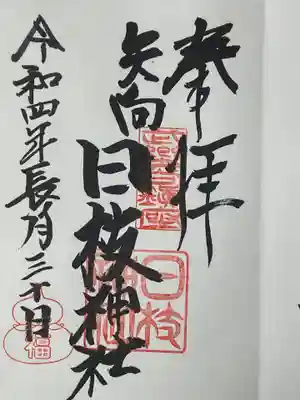 奉拝
矢向
日枝神社
令和四年長月三十日
日枝
福